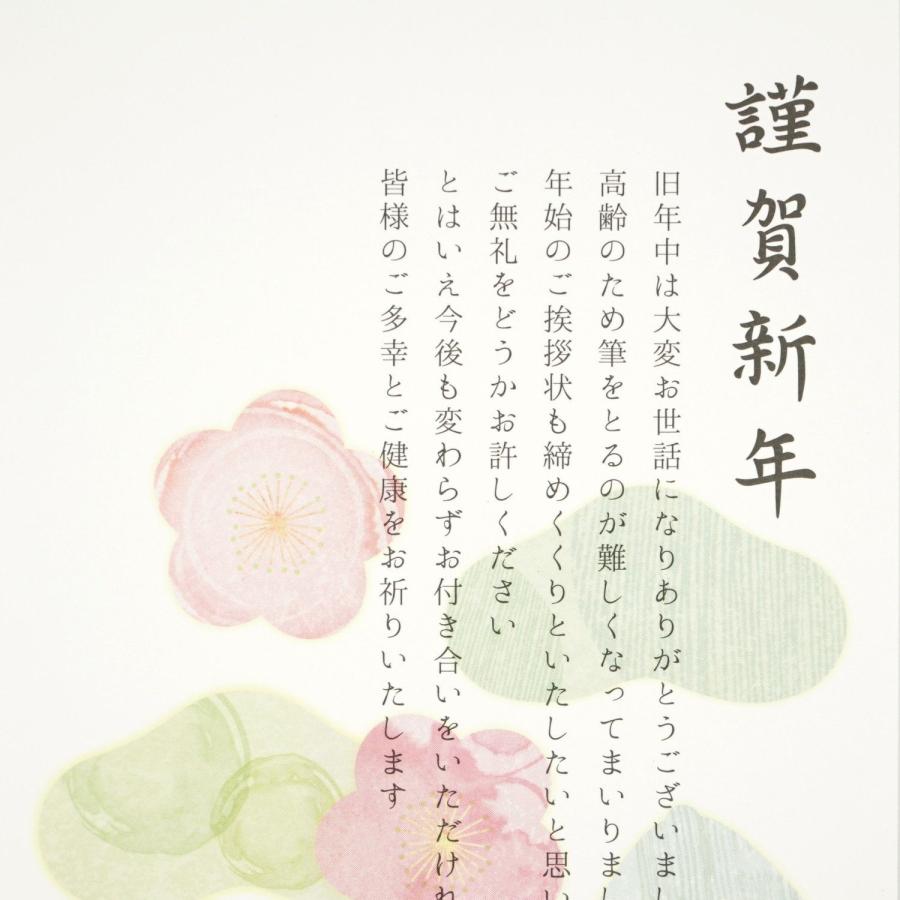 謹賀新年
旧年中は大変お世話になりありがとうございまし
高齢のため筆をとるのが難しくなってまいりまし
年始のご挨拶状も締めくくりといたしたいと思い
ご無礼をどうかお許しください
とはいえ今後も変わらずお付き合いをいただけれ
皆様のご多幸とご健康をお祈りいたします